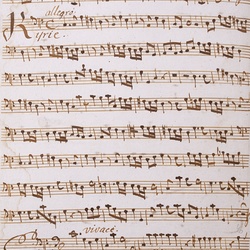 allegro
Kyrie.
vivace